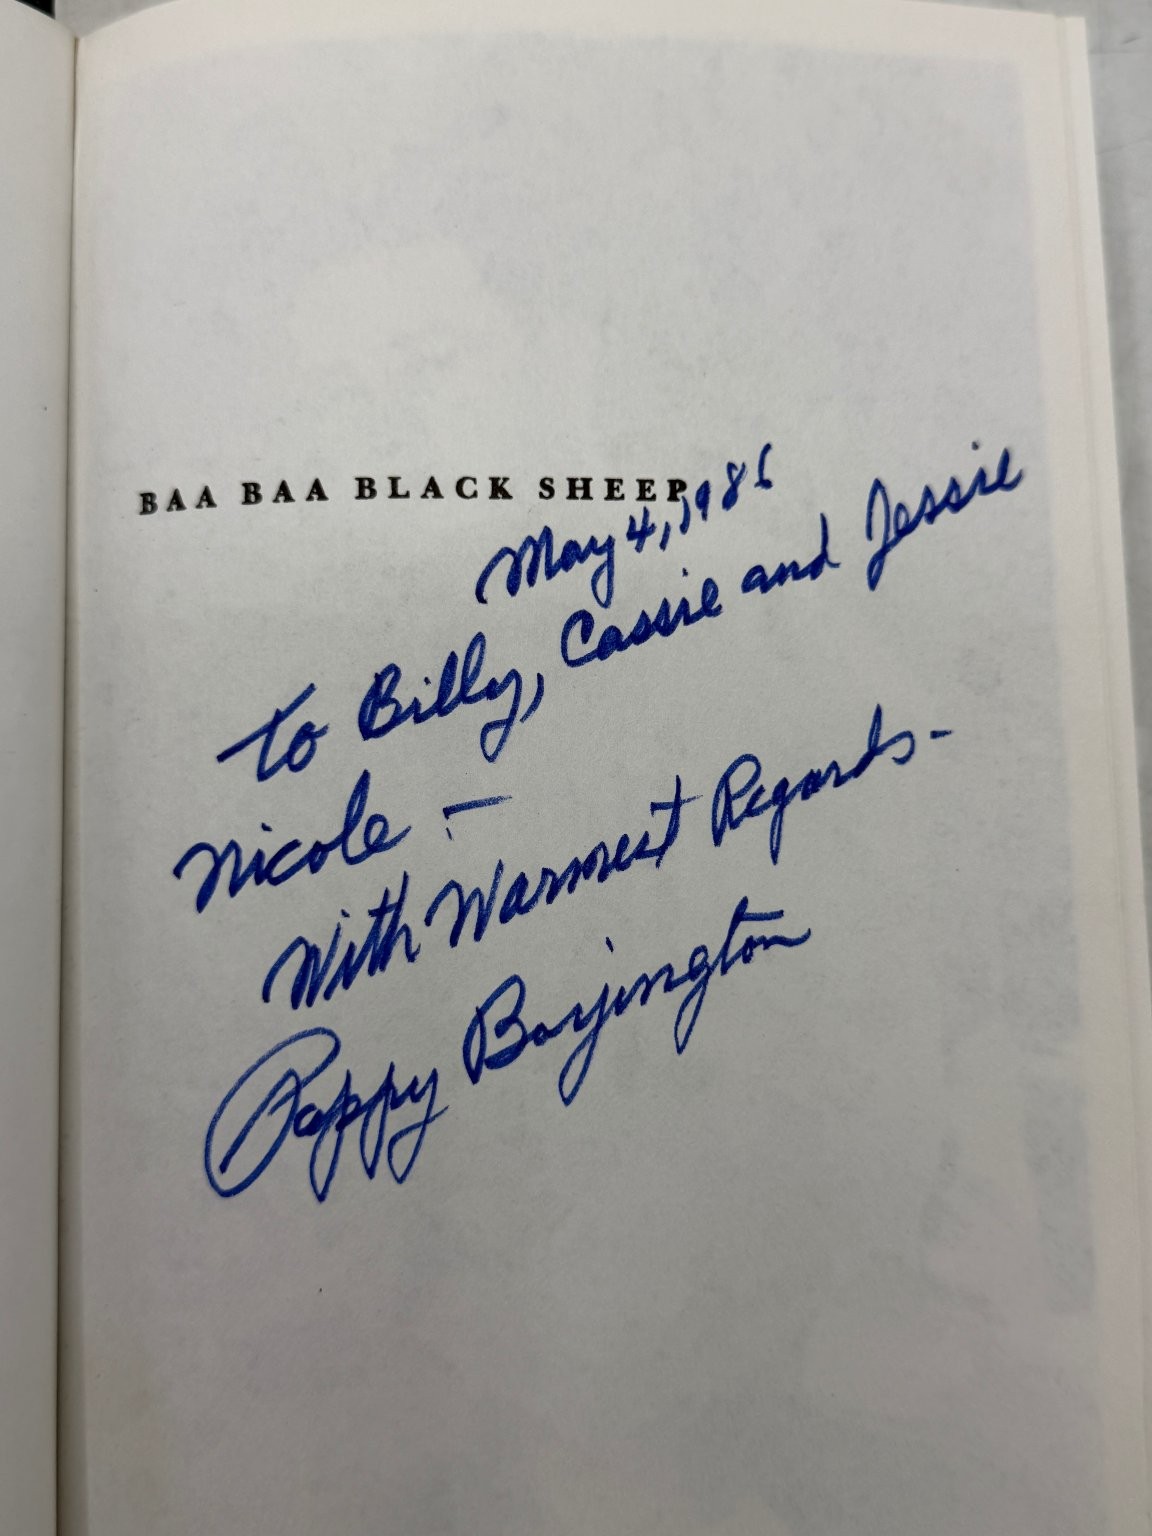 BAA BAA BLACK SHEEP
May 4, 1986
To Billy, Cassie and Jessie
Nicole —
With Warmest Regards -
Pappy Boyington